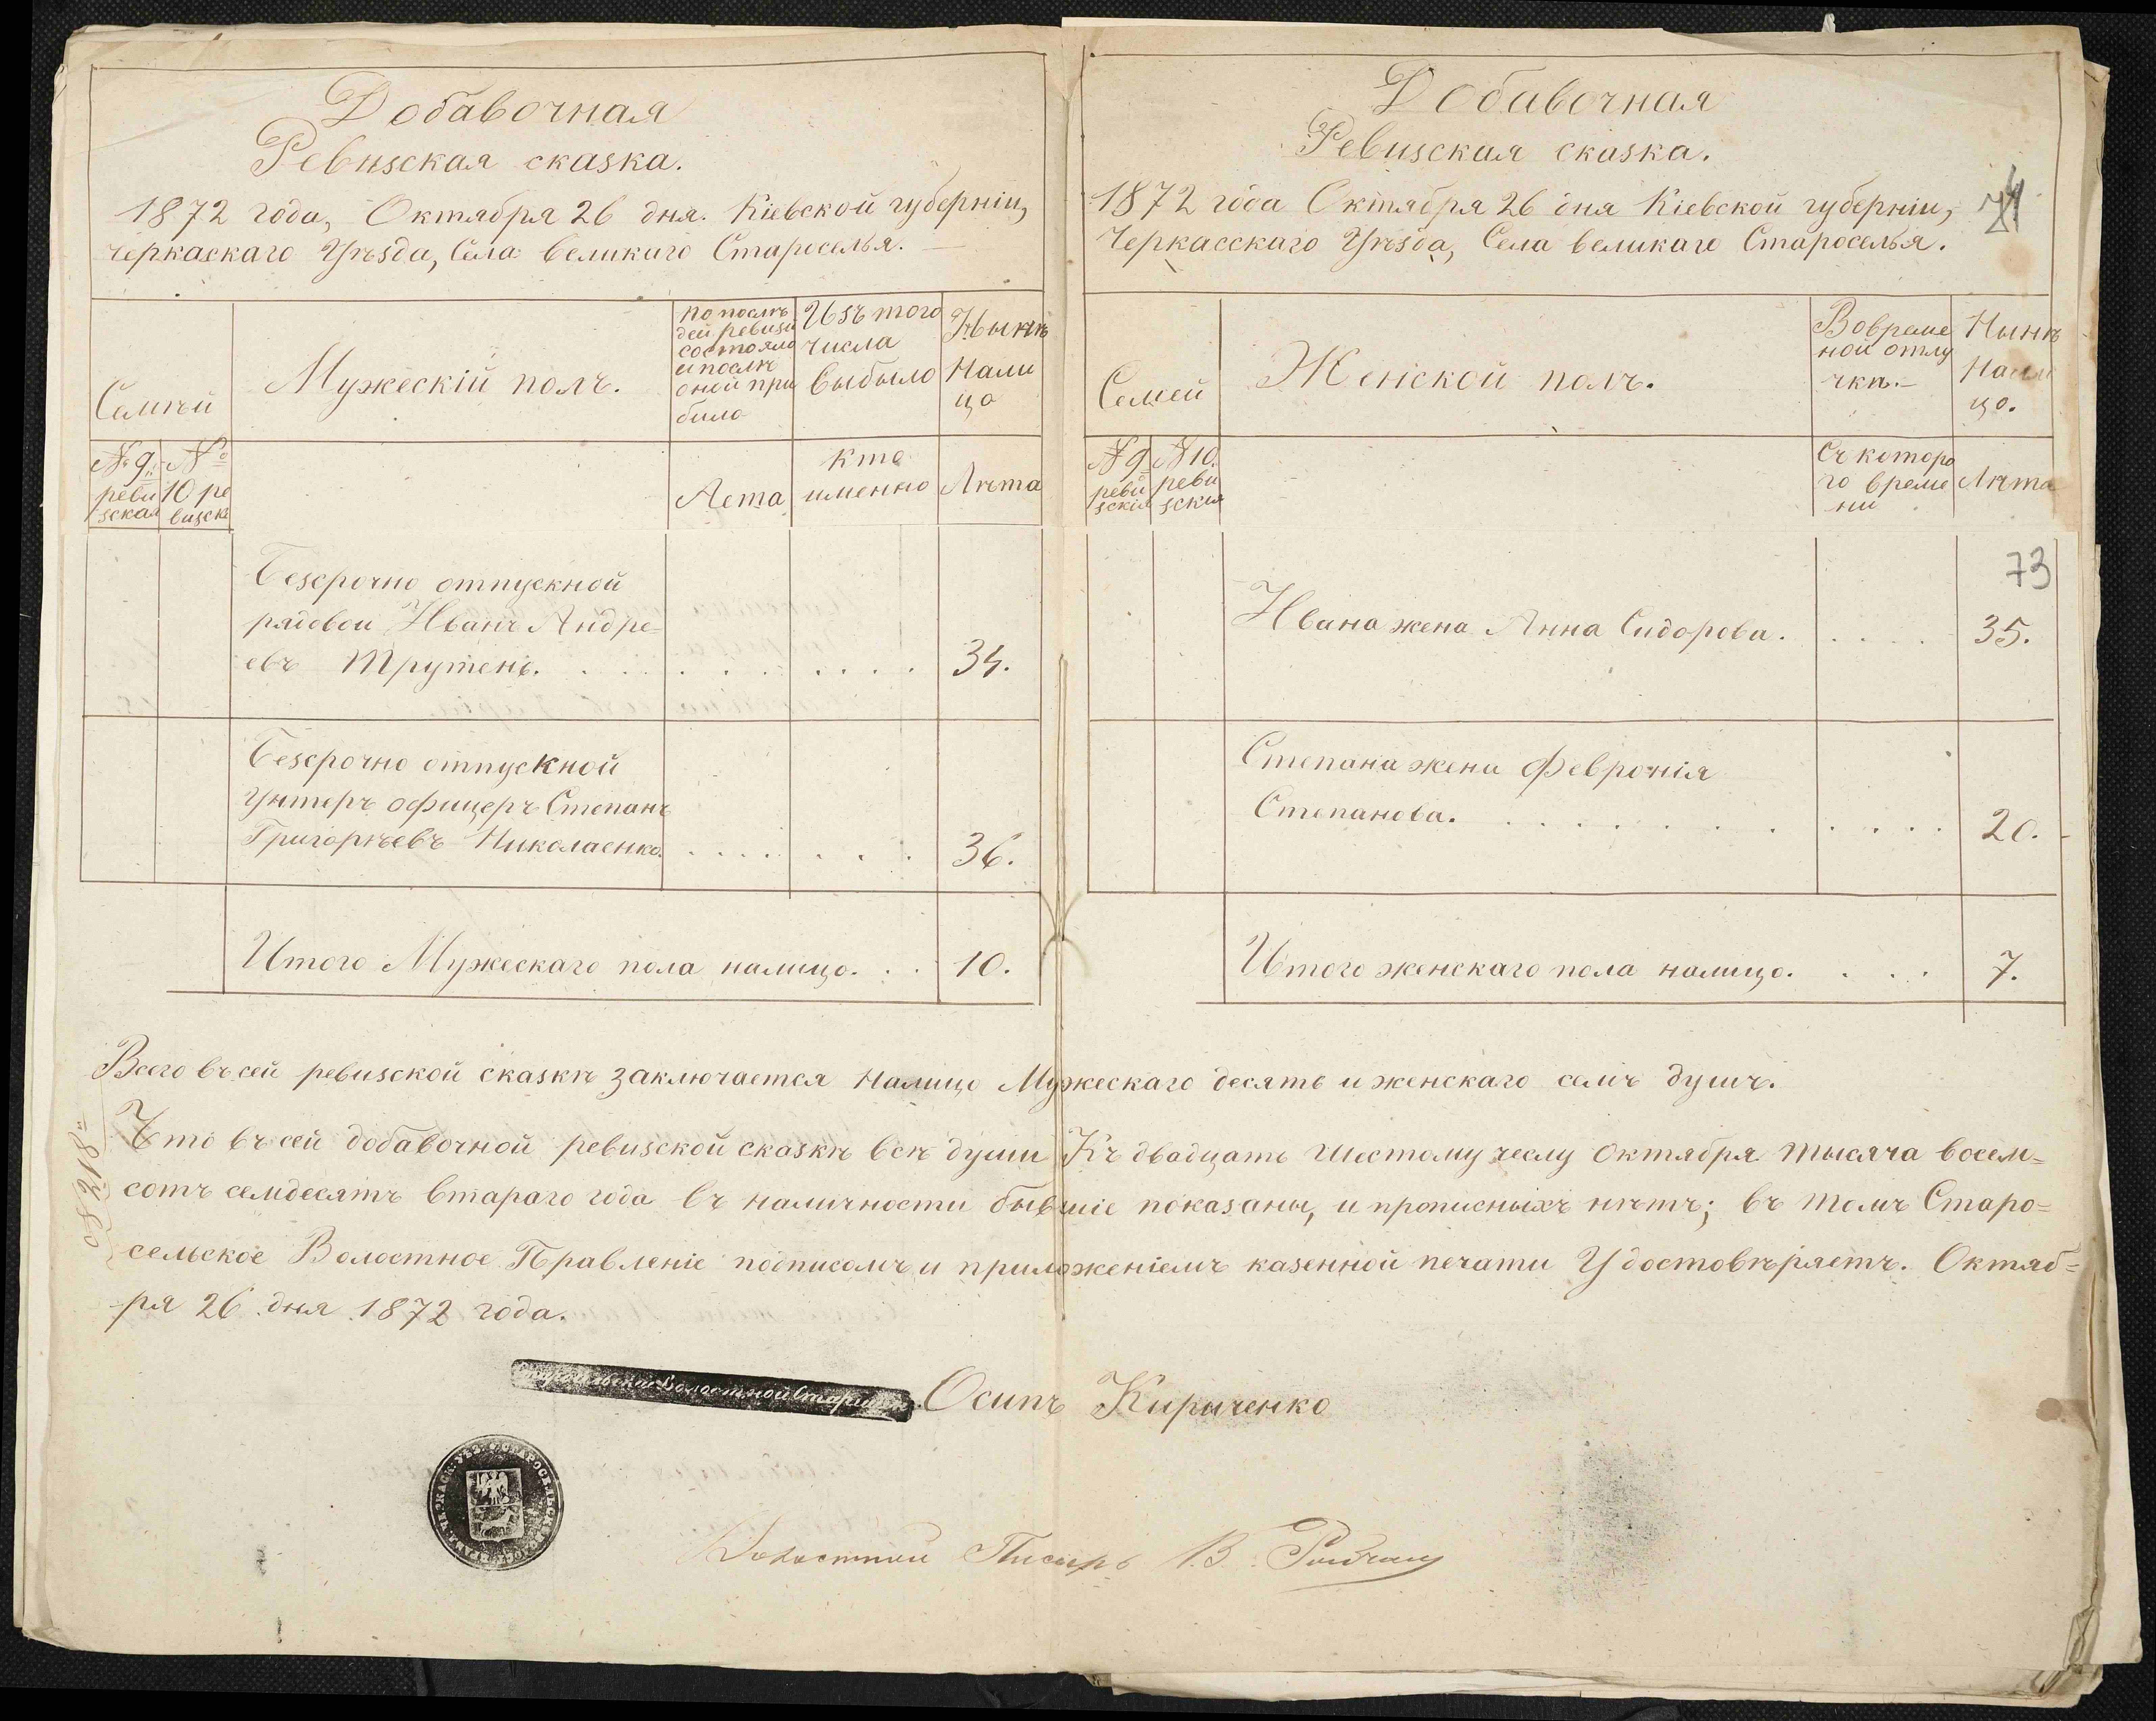 Добавочная
Ревизская сказка.
1872 года, Октября 26 дня. Кіевской губерніи,
Черкаскаго Уѣзда, Села Великаго Староселья.
Семѣй
Мужескій полъ.
По послѣ
дей ревизи
состояло
и послѣ
оной при
было
Изъ того
числа
выбыло
Нынѣ
Нали
цо
№ 9
реви
зская
№
10 ре
визск
Лета
кто
именно
Лѣта
Безсрочно отпускной
рядовой Иванъ Андре=
евъ Трутень. 34.
Безсрочно отпускной
Унтеръ офицеръ Степанъ
Григорѣевъ Николаенко. 36.
Итого Мужескаго пола налицо. 10.
Добавочная
Ревизская сказка.
1872 года Октября 26 дня Кіевской губерніи,
Черкасскаго Уѣзда, Села Великаго Староселья.
74
Семей
Женской полъ.
Во време
ной отлу
чкѣ.
Нынѣ
Нали
цо.
№ 9
реви
зскія
№ 10.
реви
зския
Съ которо
го време
ни
Лѣта
73
Ивана жена Анна Сидорова. 35.
Степана жена Февронія
Степанова. 20.
Итого женскаго пола налицо. 7.
Всего въ сей ревизской сказкѣ заключается Налицо Мужескаго десять и женскаго семъ душъ.
Что въ сей добавочной ревизской сказкѣ всѣ души Къ двадцать шестому числу Октября тысяча восем=
сотъ семдесятъ втараго года въ наличности бывшіе показаны, и прописныхъ нѣтъ; въ томъ Старо=
сельское Волостное Правленіе подписомъ и приложеніемъ казенной печати Удостовѣряетъ. Октяб=
ря 26 дня 1872 года.
Волостной Старшина Осипъ Кириченко
Волостной Писарь В.